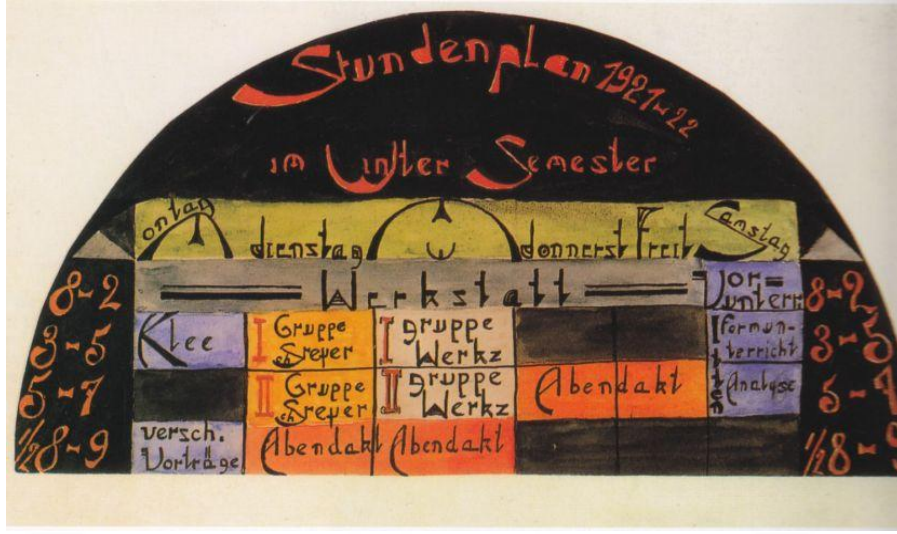 Stundenplan 1921-22
im Winter Semester
ontag dienstag M donnerst Freit Samstag
8-2 Werkstatt Vor= 8-2
unterr
3-5 Klee I Gruppe Schreyer I gruppe Werkz formun- 3-5
terricht
5-7 II Gruppe Schreyer II gruppe Werkz Abendakt Analyse 5-7
Itten
½8-9 versch. Vorträge Abendakt Abendakt ½8-9